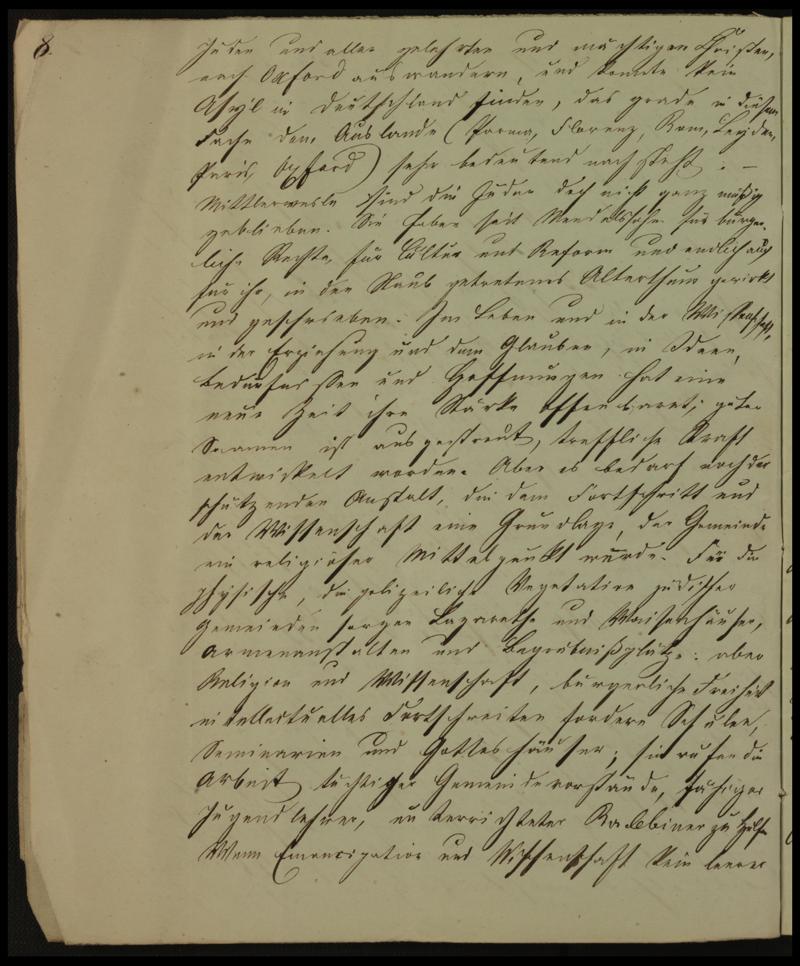 8.
Juden und aller gelehrten und mächtigen Christen,
nach Oxford auswandern, und konnte kein
Asyl in Deutschland finden, das grade in diesem
Fache dem Auslande (Parma, Florenz, Rom, Leyden,
Paris, Oxford) sehr bedeutend nachsteht. —
Mittlerweile sind die Juden doch nicht ganz müßig
geblieben. Sie haben seit Mendelssohn für bürger-
liche Rechte, für Cultur und Reform und endlich auch
für ihr, in den Staub getretenes Alterthum gewirkt
und geschrieben. Im Leben und in der Wissenschaft,
in der Erziehung und dem Glauben, in Ideen,
Bedürfnissen und Hoffnungen hat eine
neue Zeit ihre Stärke offenbaret; guter
Saamen ist ausgestreut, treffliche Kraft
entwickelt worden. Aber es bedarf noch der
schützenden Anstalt, die dem Fortschritt und
der Wissenschaft eine Grundlage, der Gemeinde
ein religiöser Mittelpunkt würde. Für die
physische, die polizeiliche Vegetation jüdischer
Gemeinden sorgen Lazarethe und Waisenhäuser,
Armenanstalten und Begräbnißplätze: aber
Religion und Wissenschaft, bürgerliche Freiheit
intellectuelles Fortschreiten fordern Schulen,
Seminarien und Gotteshäuser; sie rufen die
Arbeit tüchtiger Gemeindevorstände, fähiger
Jugendlehrer, unterrichteter Rabbiner zu Hülfe
Wenn Emancipation und Wissenschaft kein leerer